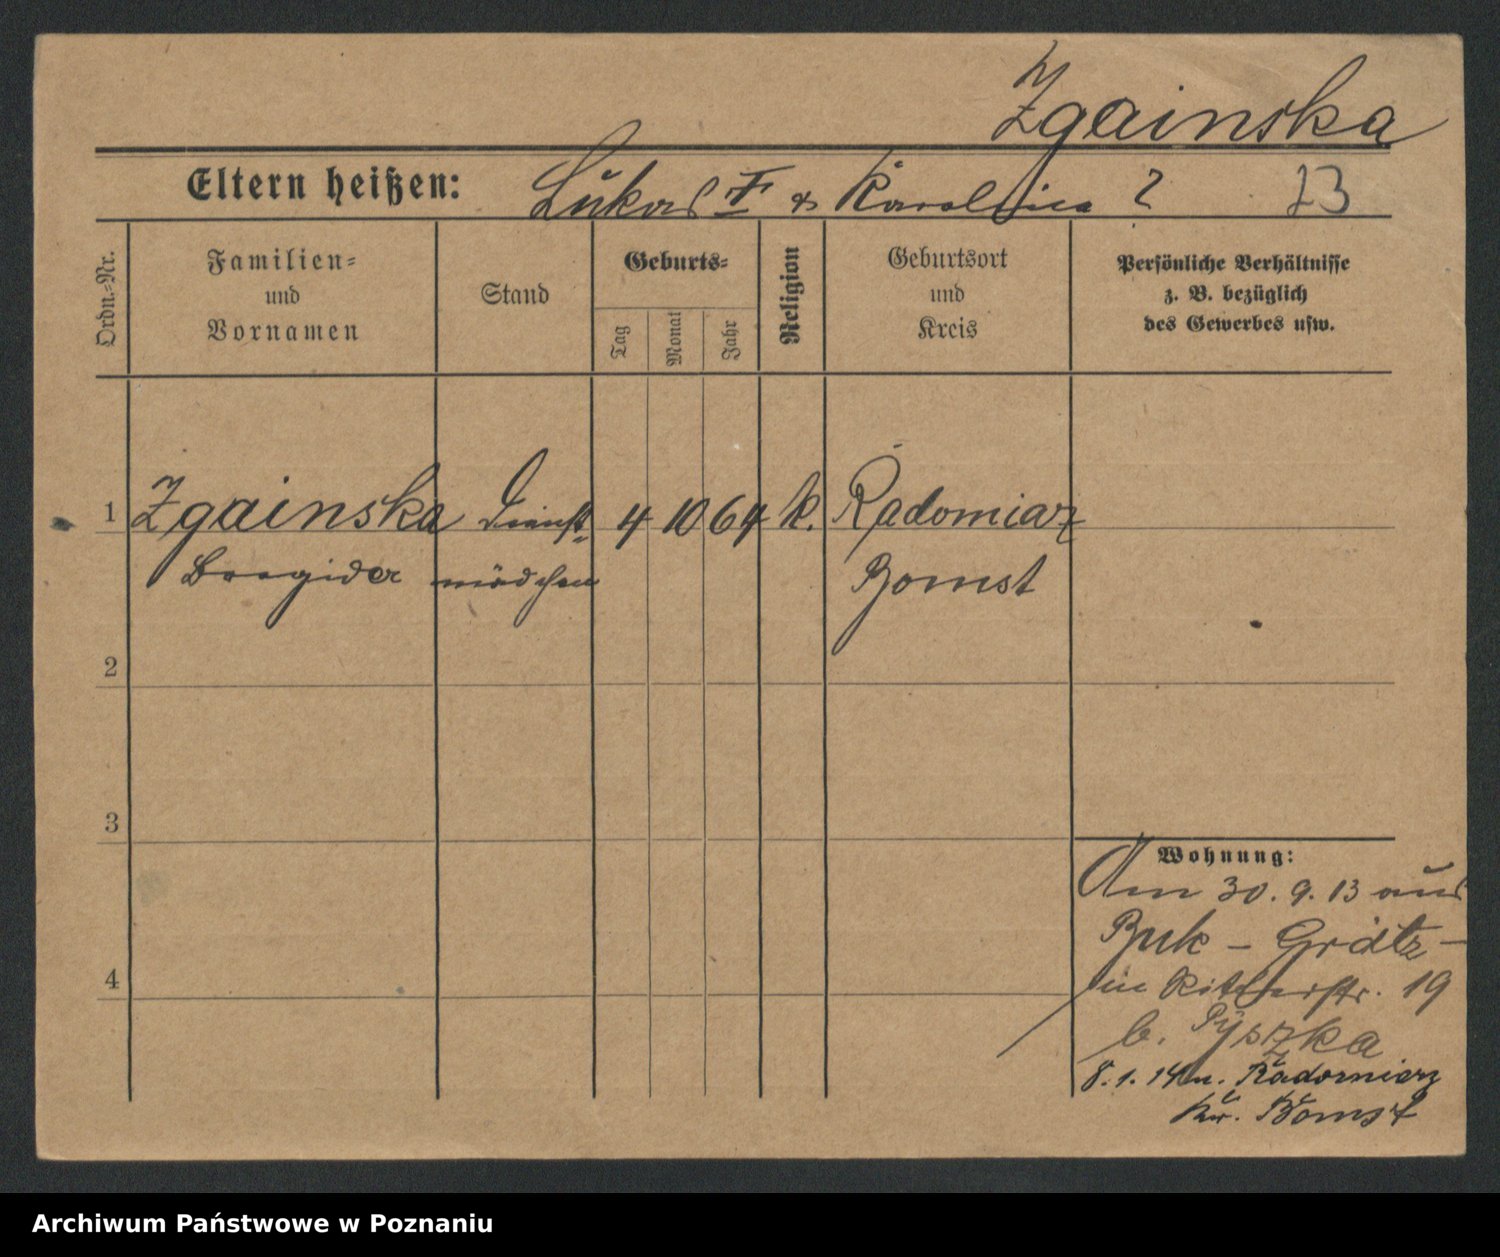 Zgainska
Eltern heißen: Lukas † & Karolina ? 23
Ordn.-Nr.
Familien=
und
Vornamen
Stand
Geburts=
Tag
Monat
Jahr
Religion
Geburtsort
und
Kreis
Persönliche Verhältnisse
z. B. bezüglich
des Gewerbes usw.
1 Zgainska Dienst= 4 10 64 k. Radomiarz
mädchen Bomst
2
3
4
Wohnung:
Am 30. 9. 13 aus
Buk – Grätz –
in Ritterstr. 19
b. Pyszka
8. 1. 14 n. Radomierz
Kr. Bomst
Archiwum Państwowe w Poznaniu